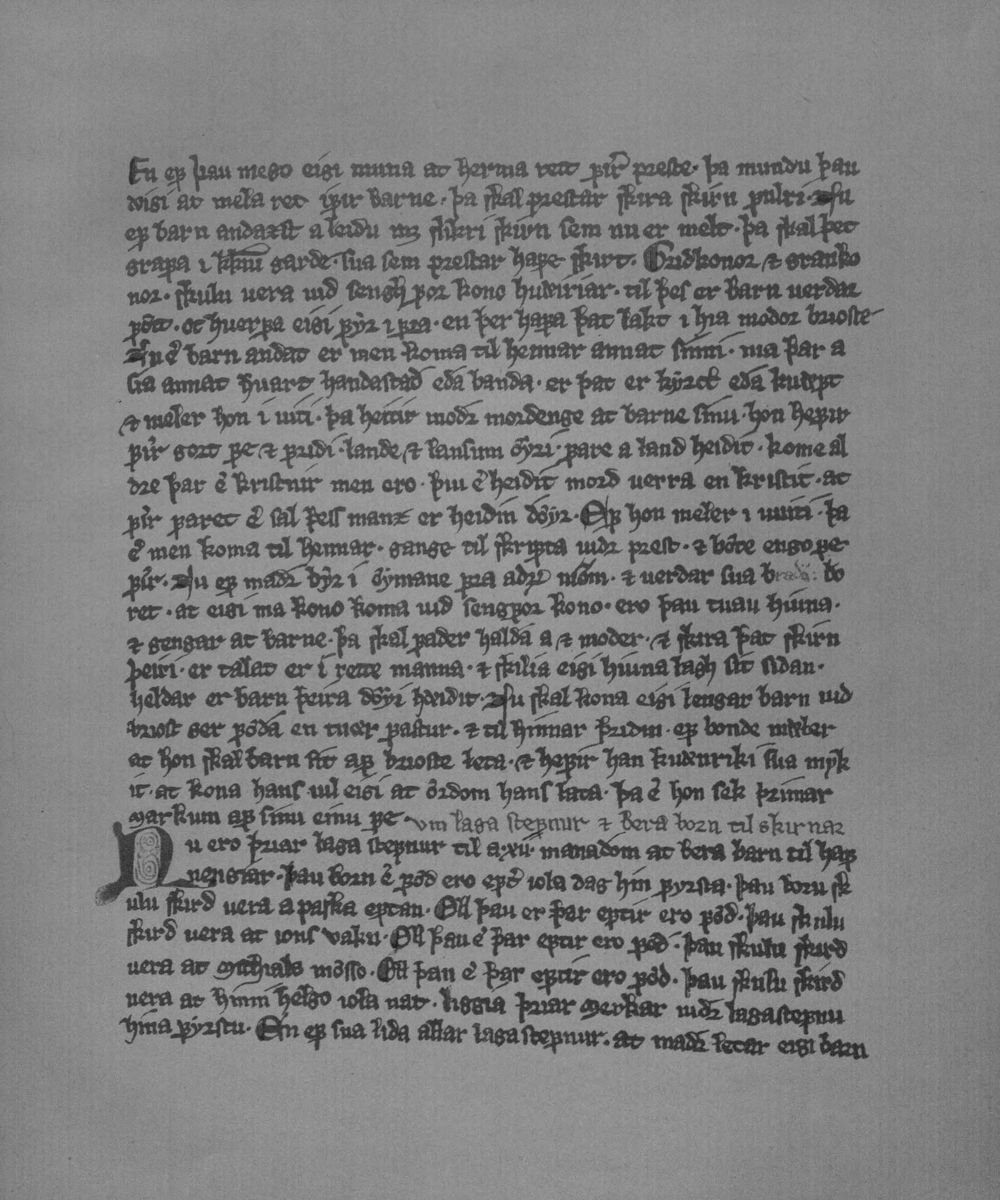 En ef þau mego eigi muna at herma rett firir preste · þa mundu þau
visi at mela ret ifir barne · þa skal prestar skira skirn fulri · Nu
ef barn andazst a leidu með slikri skirn sem nu er melt · þa skal þet
grafa i kirkiu garde · sua sem prestar hafe skirt. Gudkonor & granko
nor · skulu vera uid sengh for kono huiuriar · til þes er barn uerdar
föt · oc huerfa eigi fyr i fra · en þer hafa þat lakt i hia modor brioste
Nu er barn andat er men koma til hennar annat sinni · ma þar a
sia annat huart handastad eda banda · er þat er kyrct eda kueft
& meler hon i uiti · þa heitir modr mordenge at barne sinu · hon hefuir
firir gort fe & fridi · lande & lausum öyri · fare a land heidit · kome al
dre þar er kristnir men ero · þui er heidit mord uerra en kristit · at
firir faret er sal þess manz er heidin döyr · Ef hon meler i uuiti · þa
er men koma til hennar · gange til skripta uidr prest · & böte engo fe
firir · Nu ef madr byr i öymane fra adrum nöm · & verdar sua brad bo
ret · at eigi ma kono koma uid sengfor kono · ero þau tuau hiuna ·
& gengar at barne · þa skal fader halda a & moder · & skira þat skirn
þeiri · er talat er i rette manna · & skilia eigi hiuna lagh sit sidan ·
heldar er barn þeira döyi heidit · Nu skal kona eigi lengar barn uid
briost ser föda en tuer fastur · & til hinnar þridiu · ef bonde meler
at hon skal barn sit af brioste leta · & hefir han kuenriki sua myk
it · at kona hans uil eigi at ordom hans lata · þa er hon sek þrimar
markum af sinu einu fe · vm laga stefnur & bera born til skirnar
Nu ero þriar laga stefnur til a · xii · manadom at bera barn til hafs
uengiar · þau born er föd ero eptir iola dag hin fyrsta · þau born sk
ulu skird vera a paska eptan · Oll þau er þar eptir ero föd · þau skulu
skird vera at ions vaku · Oll þau er þar eptir ero föd · þau skulu skird
vera at Michials mösso · Oll þau er þar eptir ero föd · þau skulu skird
vera at hinni helgo iola nat · liggia þriar merkar uidr lagastefnu
hina fyrstu · En ef sua lida allar lagastefnur · at madr letar eigi barn